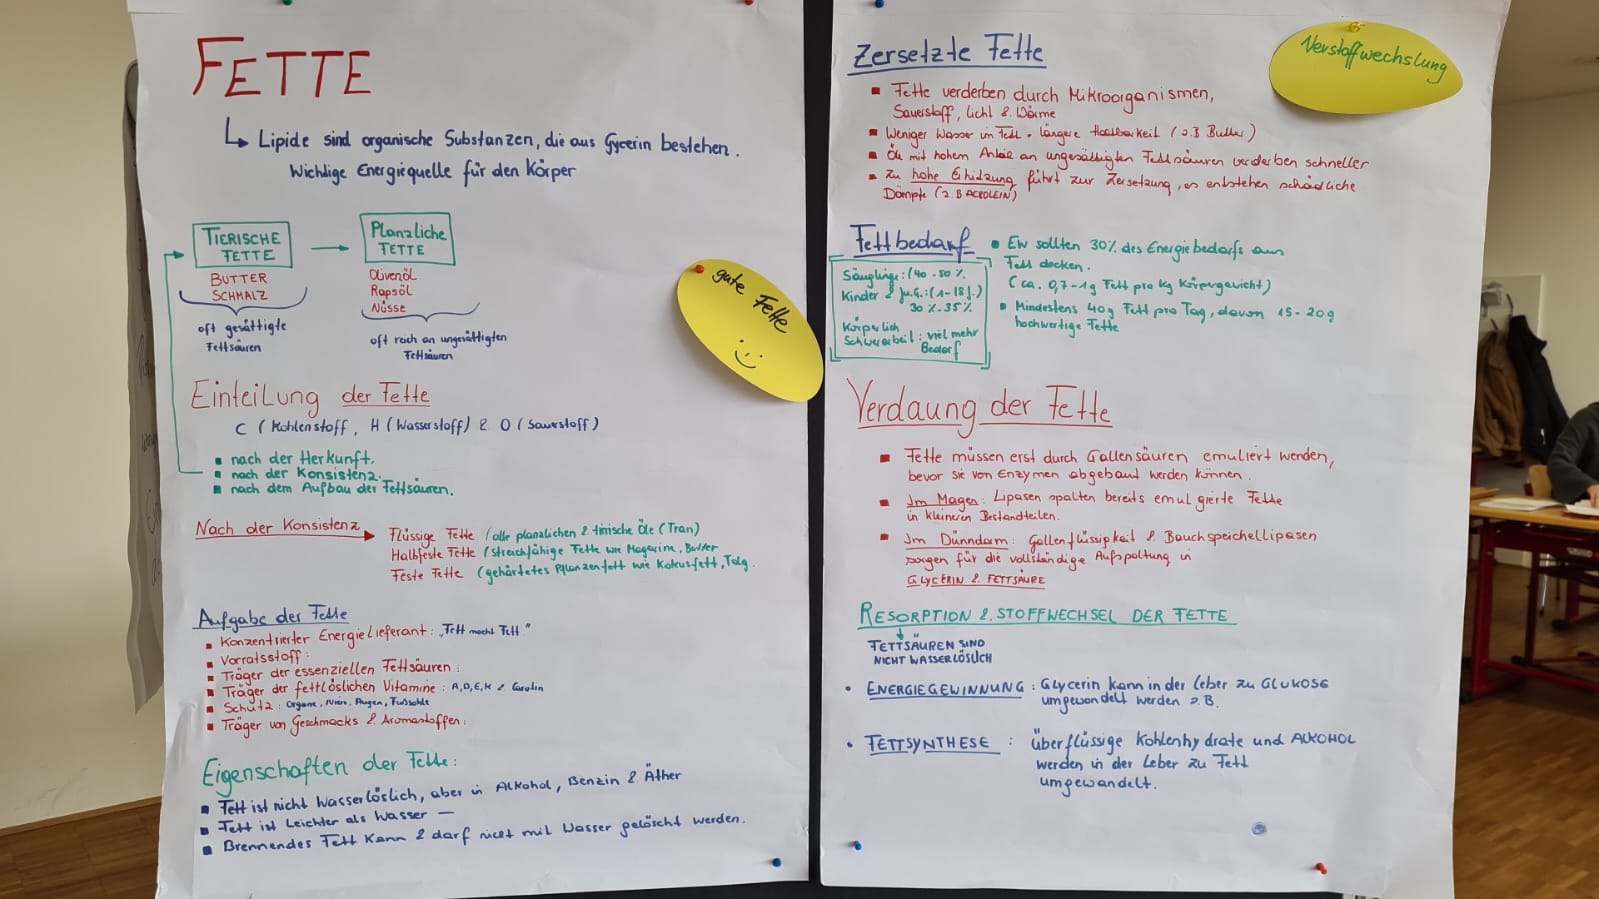 FETTE
↳ Lipide sind organische Substanzen, die aus Gycerin bestehen.
Wichtige Energiequelle für den Körper
TIERISCHE
FETTE
BUTTER
SCHMALZ
oft gesättigte
Fettsäuren
Planzliche
FETTE
Olivenöl
Rapsöl
Nüsse
oft reich an ungesättigten
Fettsäuren
gute Fette
Einteilung der Fette
C (Kohlenstoff, H (Wasserstoff) & O (Sauerstoff)
▪ nach der Herkunft.
▪ nach der Konsistenz.
▪ nach dem Aufbau der Fettsäuren.
Nach der Konsistenz → Flüssige Fette (alle planzlichen & tirische Öle (Tran)
Halbfeste Fette (streichfähige Fette wie Magarine, Butter
Feste Fette (gehärtetes Pflanzenfett wie Kokusfett, Talg.
Aufgabe der Fette
▪ Konzentrierter Energielieferant: „Fett macht Fett"
▪ Vorratsstoff:
▪ Träger der essenziellen Fettsäuren:
▪ Träger der fettlöslichen Vitamine: A, D, E, K & Carotin
▪ Schutz: Organe, Niere, Augen, Fußsohle
▪ Träger von Geschmacks & Aromastoffen:
Eigenschaften der Fette:
▪ Fett ist nicht Wasserlöslich, aber in Alkohol, Benzin & Äther
▪ Fett ist Leichter als Wasser —
▪ Brennendes Fett kann & darf nicht mit Wasser gelöscht werden.
Zersetzte Fette
Verstoffwechslung
▪ Fette verderben durch Mikroorganismen,
Sauerstoff, licht & Wärme
▪ Weniger Wasser im Fett = längere Haltbarkeit (z.B Butter)
▪ Öle mit hohem Anteil an ungesättigten Fettsäuren verderben schneller
▪ Zu hohe Erhitzung führt zur Zersetzung, es entstehen schädliche
Dämpfe (z.B ACROLEIN)
Fettbedarf
Säuglinge: (40-50 %.
Kinder & Jug.: (1-18 J.)
30 %-35 %
Körperlich
Schwerarbeit: viel mehr
Bedarf
▪ EW sollten 30% des Energiebedarfs aus
Fett decken.
(ca. 0,7-1g Fett pro kg Körpergewicht)
▪ Mindestens 40g Fett pro Tag, davon 15-20g
hochwertige Fette
Verdaung der Fette
▪ Fette müssen erst durch Gallensäuren emuliert werden,
bevor sie von Enzymen abgebaut werden können.
▪ Im Magen: Lipasen spalten bereits emulgierte Fette
in kleineren Bestandteilen.
▪ Im Dünndarm: Gallenflüssigkeit & Bauchspeichellipasen
sorgen für die vollständige Aufspaltung in
GLYCERIN & FETTSÄURE
RESORPTION & STOFFWECHSEL DER FETTE
FETTSÄUREN SIND
NICHT WASSERLÖSLICH
• ENERGIEGEWINNUNG: Glycerin kann in der Leber zu GLUKOSE
umgewandelt werden z.B.
• FETTSYNTHESE: überflüssige Kohlenhydrate und ALKOHOL
werden in der Leber zu Fett
umgewandelt.